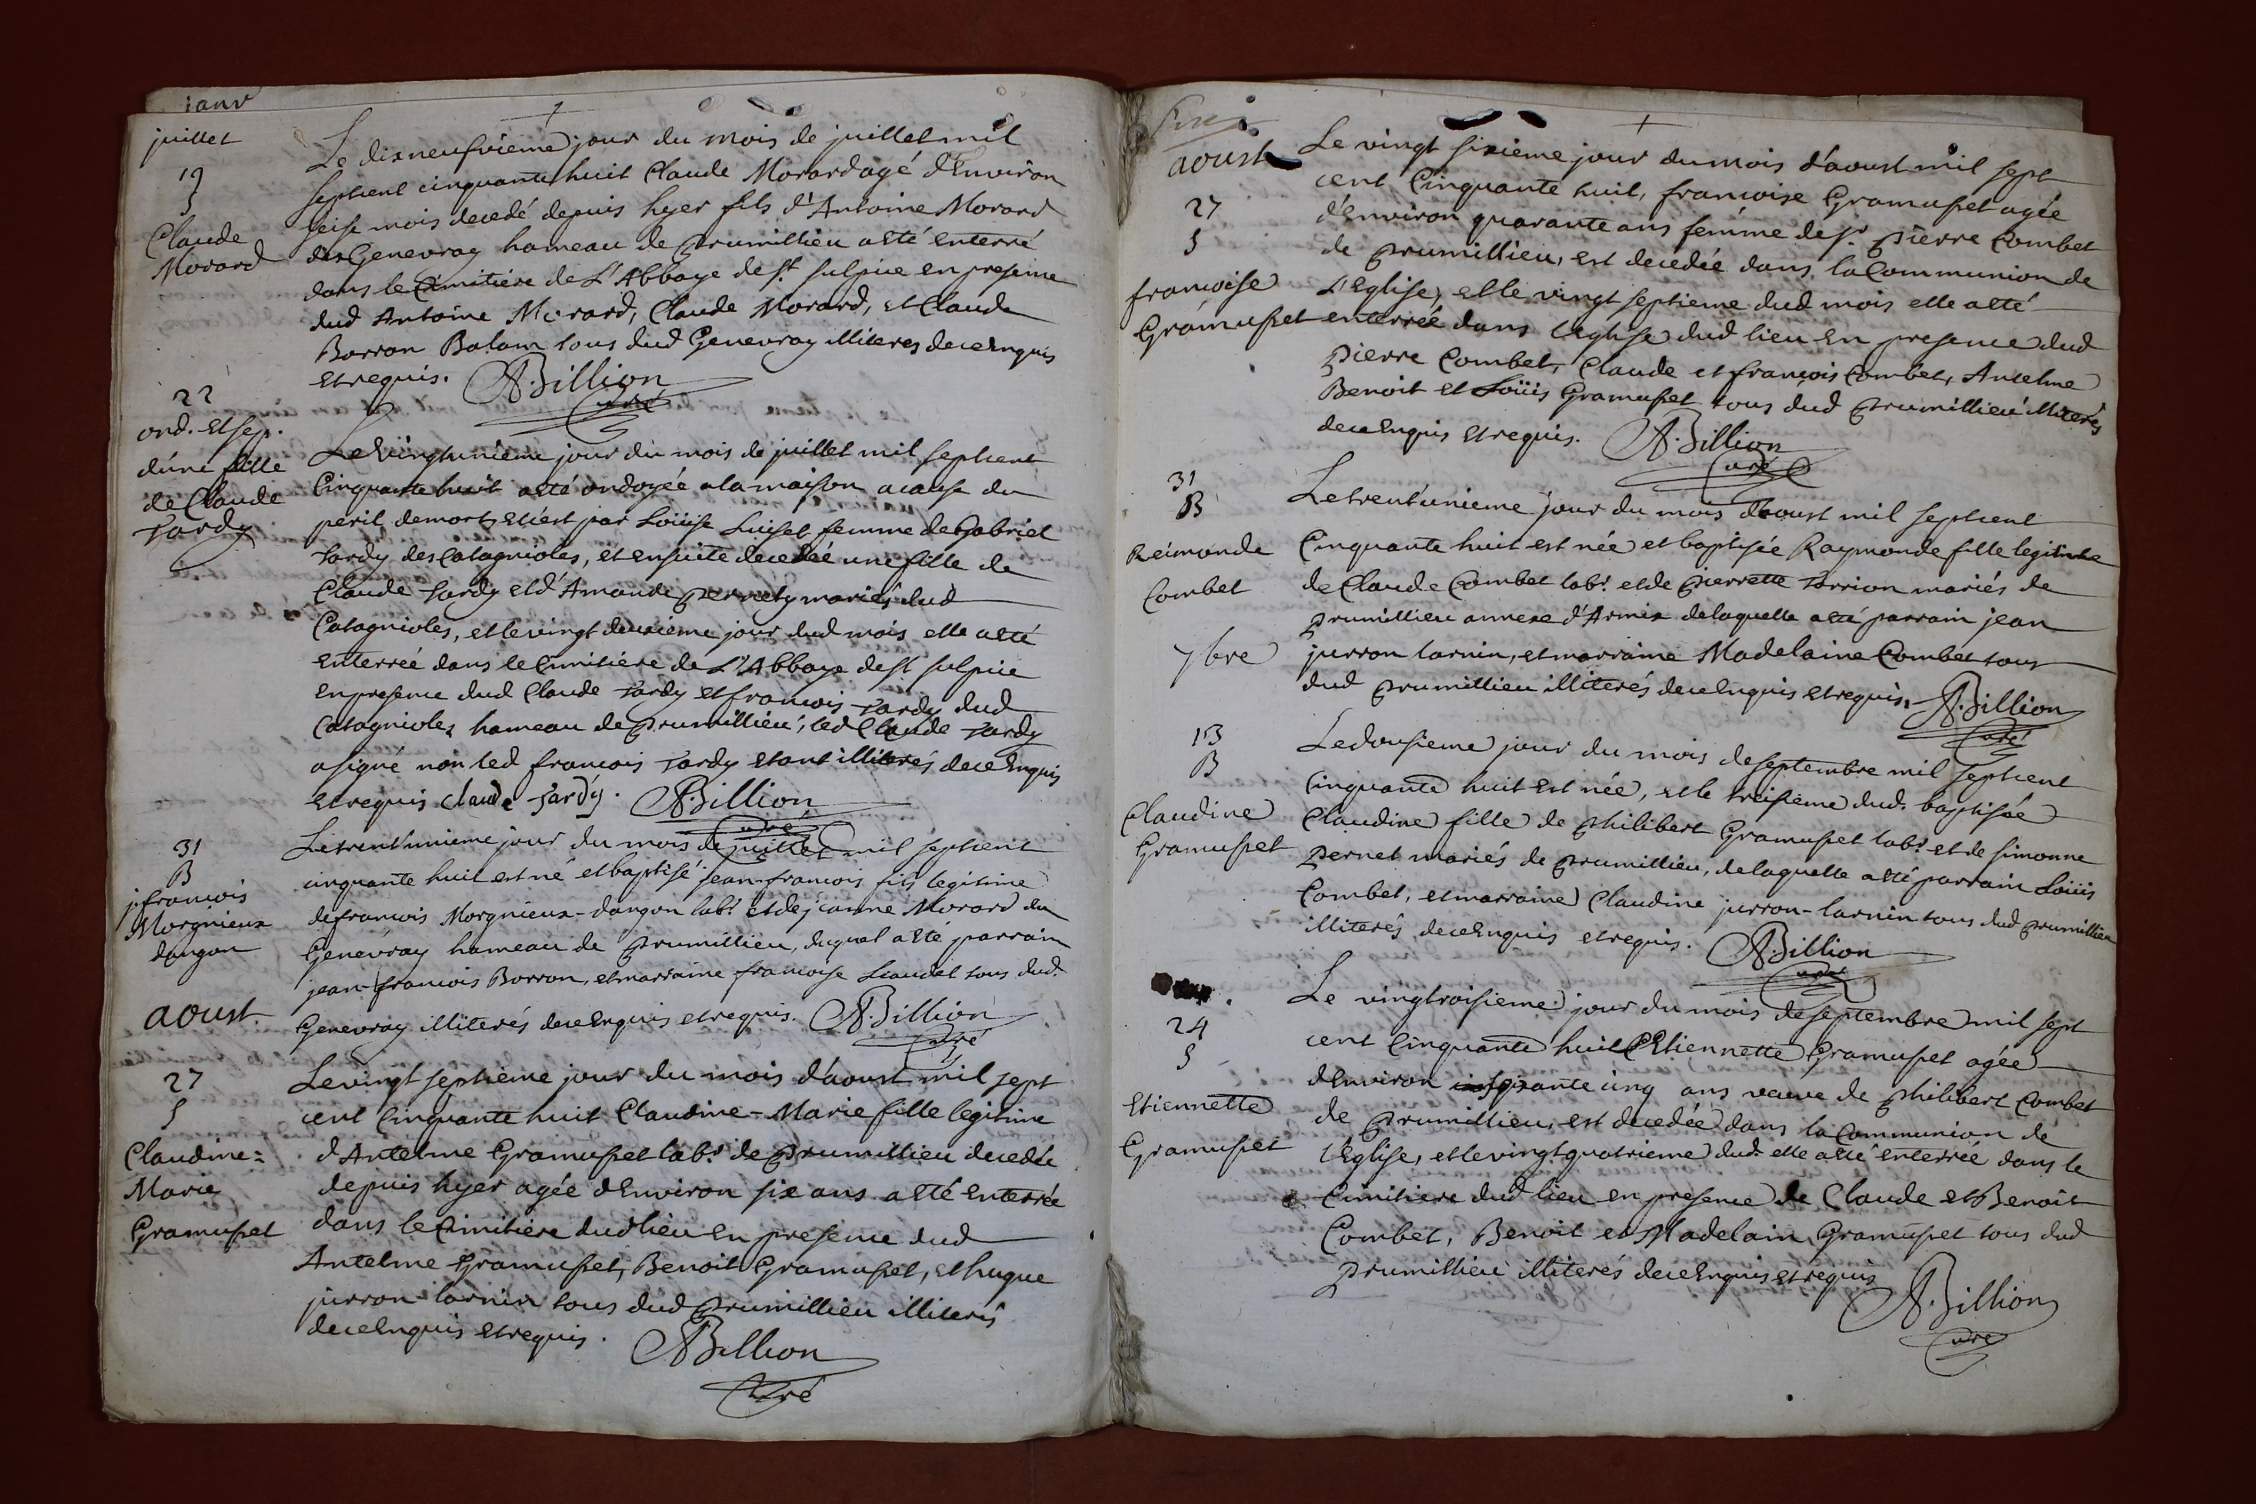 janv
juillet
19
S
Claude
Morard
Le dixneufvieme jour du mois de juillet mil
septcent cinquante huit Claude Morard agé d'Environ
seise mois decedé depuis hyer fils d'Antoine Morard
de Genevray hameau de prumillieu a eté enterré
dans le Cimitiére de L'Abbaye de st. sulpice en presence
dud Antoine Morard, Claude Morard, et Claude
Borron Balam tous dud Genevray illiteres de ce Enquis
et requis. A. Billion
curé
22
ond. et sep.
d'une fille
de Claude
Tardy
Le vingtunieme jour du mois de juillet mil septcent
Cinquante huit a eté ondoyée a la maison a cause du
peril de mort, et c'est par Loüise Luiset femme de Gabriel
Tardy des Catagnioles, et ensuite decedée une fille de
Claude Tardy et d'Amande pernety mariés dud
Catagnioles, et le vingt deuxieme jour dud mois elle a eté
enterreé dans le Cimitiére de L'Abbaye de st. sulpice
en presence dud Claude Tardy et francois Tardy dud
Catagnioles hameau de prumillieu, led Claude Tardy
a signé non led francois Tardy etant illiterés de ce Enquis
et requis Claude Tardy. A. Billion
curé
31
B
j françois
Morgnieux
dangon
Le trent'unieme jour du mois de juillet mil septcent
cinquante huit est né et baptisé jean-francois fils legitime
de francois Morgnieux-dangon labr. et de jeanne Morard du
Genevray hameau de prumillieu, duquel a eté parrain
jean-francois Borron, et marraine francoise Liaudet tous dud.
Genevray illiterés de ce Enquis et requis. A. Billion
Curé
aoust.
27
S
Claudine=
Marie
Gramuset
Le vingt septieme jour du mois d'aoust mil sept
cent Cinquante huit Claudine-Marie fille legitime
d'Antelme Gramuset labr. de prumillieu decedée
depuis hyer agée d'Environ six ans a eté enterrée
dans le Cimitiére dud lieu en presence dud
Antelme Gramuset, Benoit Gramuset, et hugue
jurron-larnin tous dud prumillieu illiterés
de ce Enquis et requis. A Billion
Curé
aoust
27
S
francoise
Gramuset
Le vingt sixieme jour du mois d'aoust mil sept
cent Cinquante huit, francoise Gramuset agée
d'Environ quarante ans femme de sr. pierre Combet
de prumillieu, est decedée dans la Communion de
L'Eglise, et le vingt septieme dud mois elle a eté
enterrée dans l'eglise dud lieu En presence dud
pierre Combet, Claude et françois Combet, Antelme
Benoit et Loüis Gramuset tous dud prumillieu illiterés
de ce Enquis et requis. A. Billion
curé
31
B
Reimonde
Combet
Le trent'unieme jour du mois d'aoust mil septcent
Cinquante huit est née et baptisée Raymonde fille legitime
de Claude Combet labr. et de pierrette Torrion mariés de
prumillieu annexe d'Armix de laquelle a eté parrain jean
jurron larnin, et marraine Madelaine Combet tous
dud prumillieu illiterés de ce Enquis et requis. A. Billion
Curé
7bre
13
B
Claudine
Gramuset
Le dousieme jour du mois de septembre mil septcent
Cinquante huit est née, et le treisieme dud. baptisée
Claudine fille de philibert Gramuset labr. et de simonne
pernet mariés de prumillieu, de laquelle a eté parrain Loüis
Combet, et marraine Claudine jurron-larnin tous dud prumillieu
illiterés de ce Enquis et requis. A. Billion
curé
24
S
Etiennette
Gramuset
Le vingtroisieme jour du mois de septembre mil sept
cent Cinquante huit Etiennette Gramuset agée
d'Environ soixante cinq ans veuve de philibert Combet
de prumillieu, est decedée dans la Communion de
L'Eglise, et le vingtquatrieme dud. elle a eté enterrée dans le
Cimitiere dud lieu en presence de Claude et Benoit
Combet, Benoit et Madelain Gramuset tous dud
prumillieu illiterés de ce Enquis et requis
A. Billion
curé